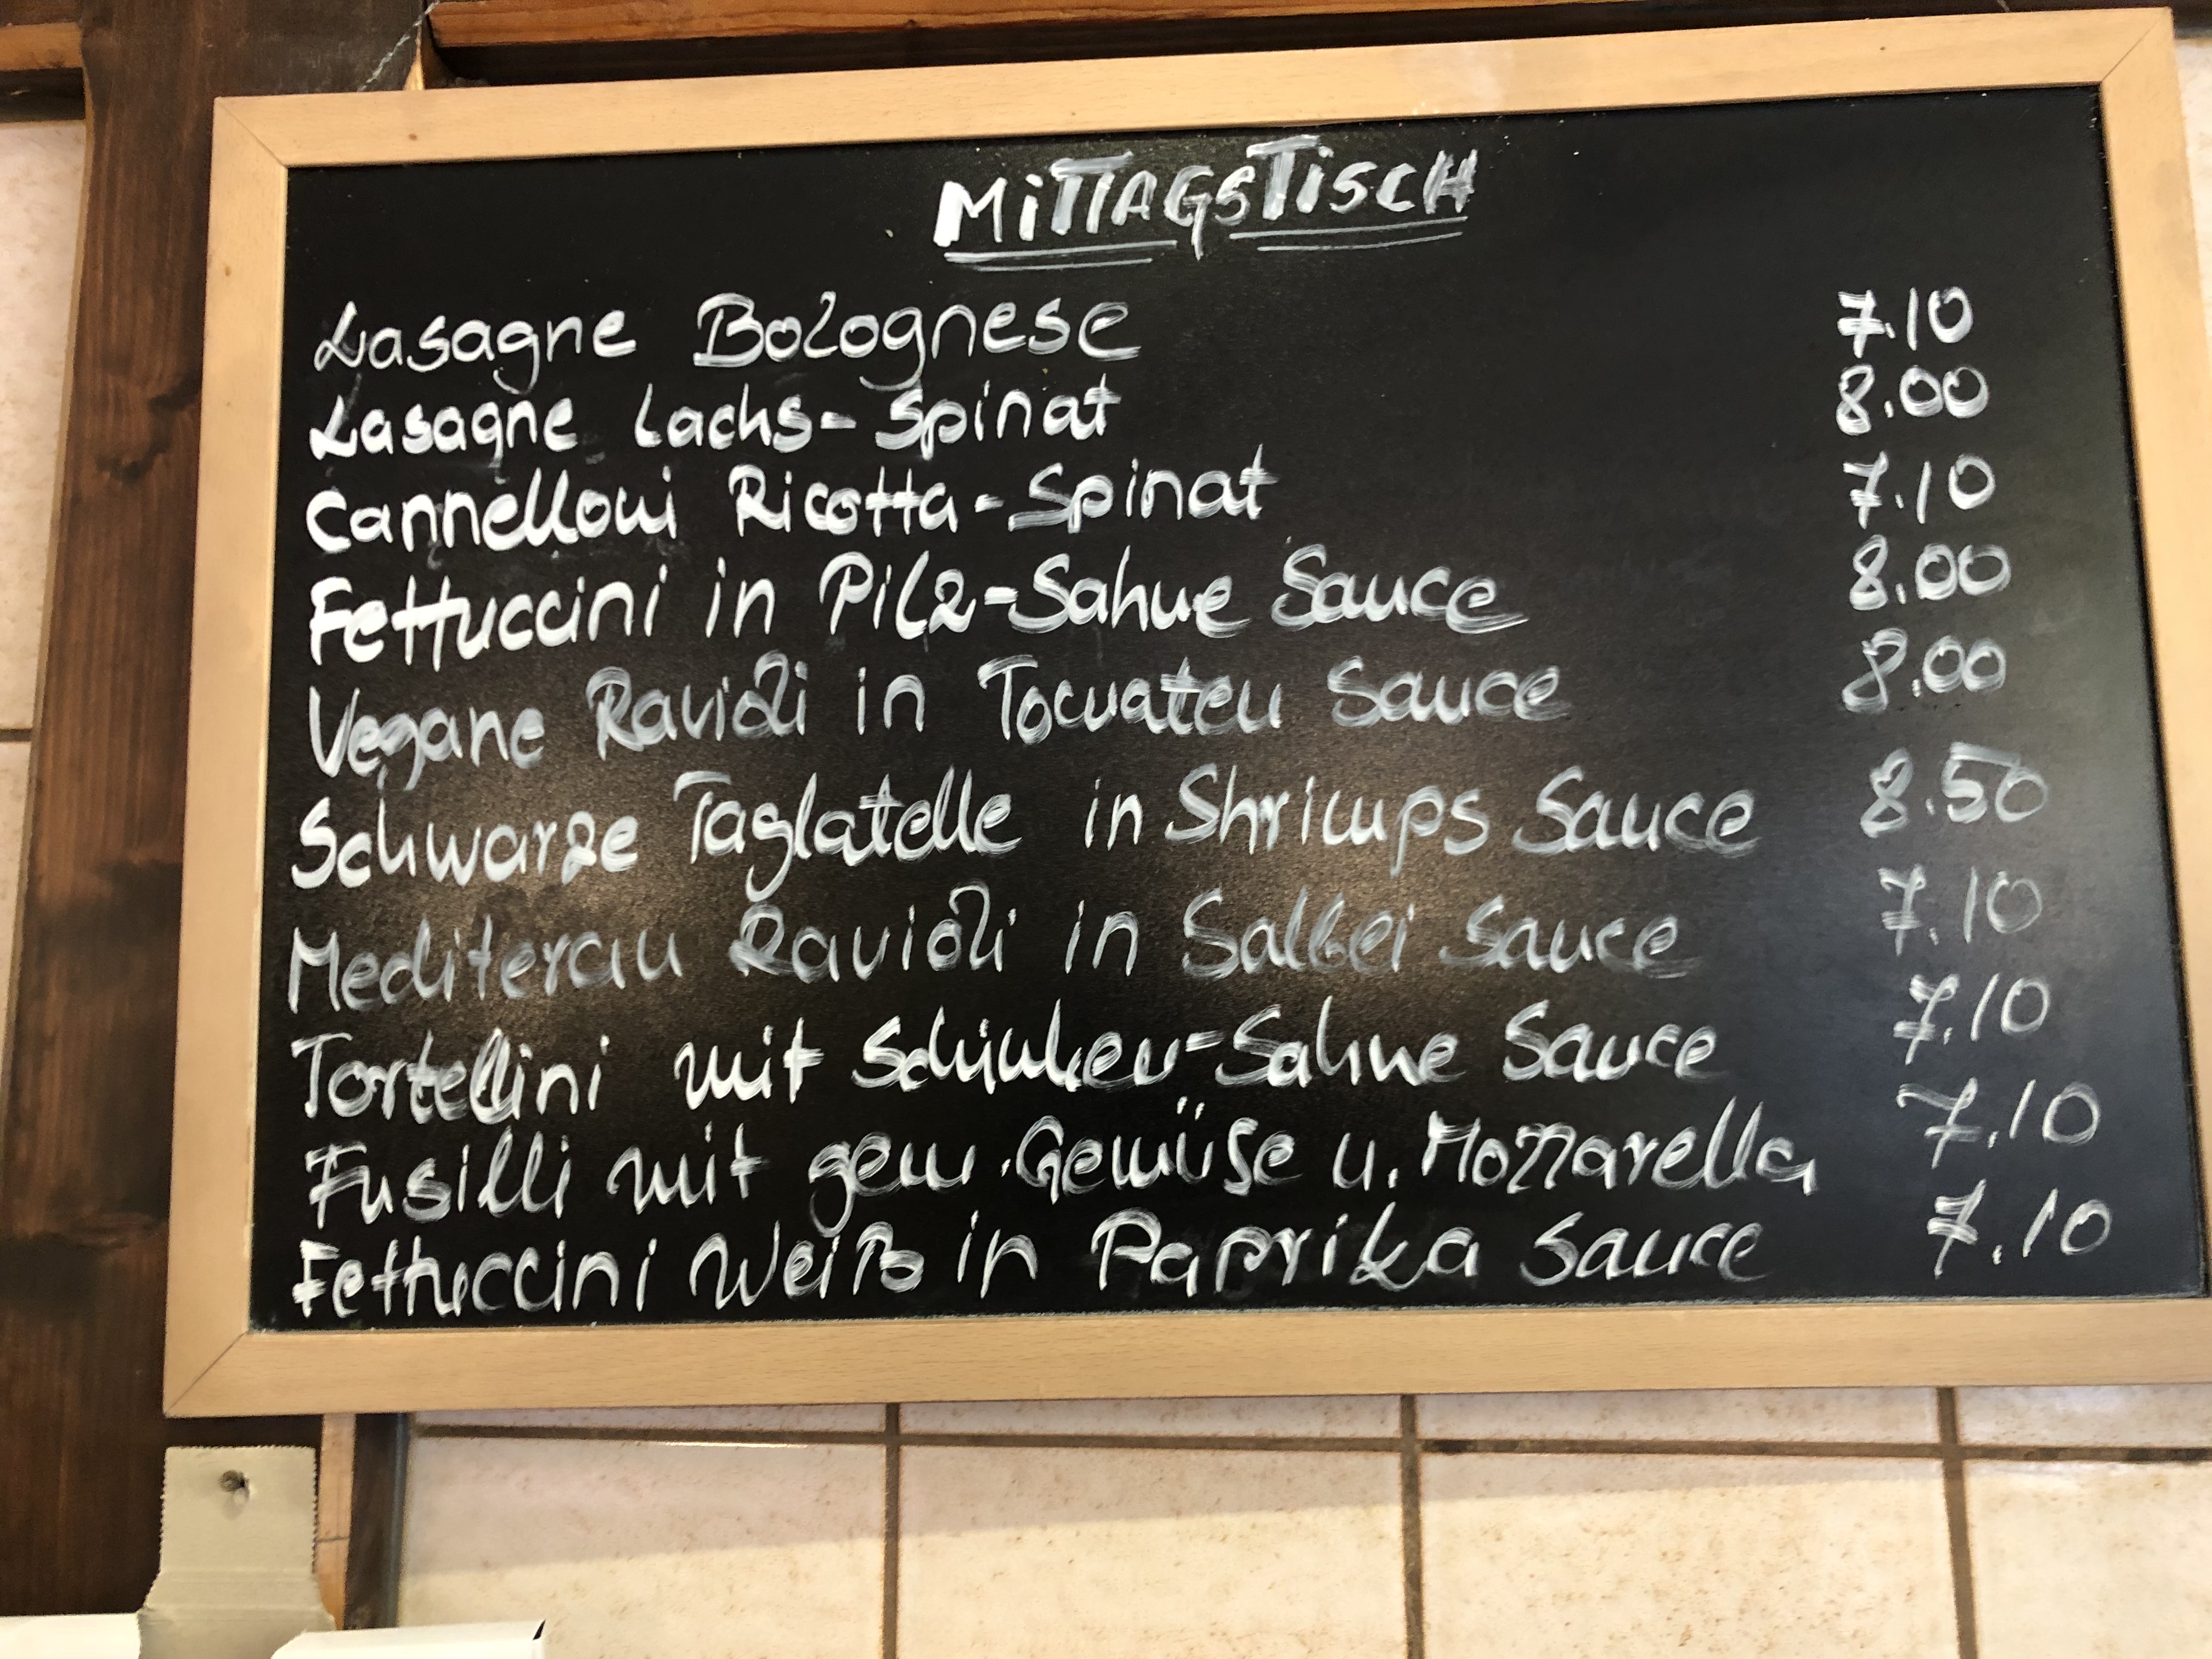 MiTTAGSTiSCH
Lasagne Bolognese 7.10
Lasagne Lachs-Spinat 8.00
Cannelloni Ricotta-Spinat 7.10
Fettuccini in Pilz-Sahne Sauce 8.00
Vegane Ravioli in Tomaten Sauce 8.00
Schwarze Taglatelle in Shrimps Sauce 8.50
Mediteran Ravioli in Salbei Sauce 7.10
Tortellini mit Schinken-Sahne Sauce 7.10
Fusilli mit gem. Gemüse u. Mozzarella 7.10
Fettuccini Weiß in Paprika Sauce 7.10